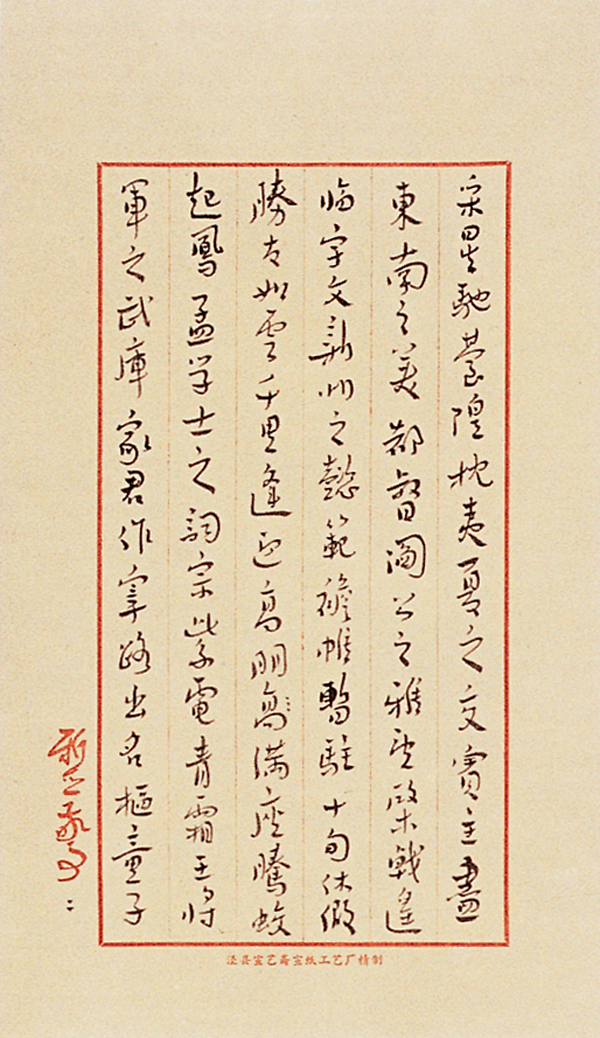 采星馳臺隍枕夷夏之交賓主盡
東南之美都督閻公之雅望棨戟遙
临宇文新州之懿範襜帷暫駐十旬休假
勝友如雲千里逢迎高朋高满座騰蛟
起鳳孟学士之詞宗紫電青霜王将
軍之武庫家君作宰路出名樞童子
泾县宣艺斋宣纸工艺厂精制